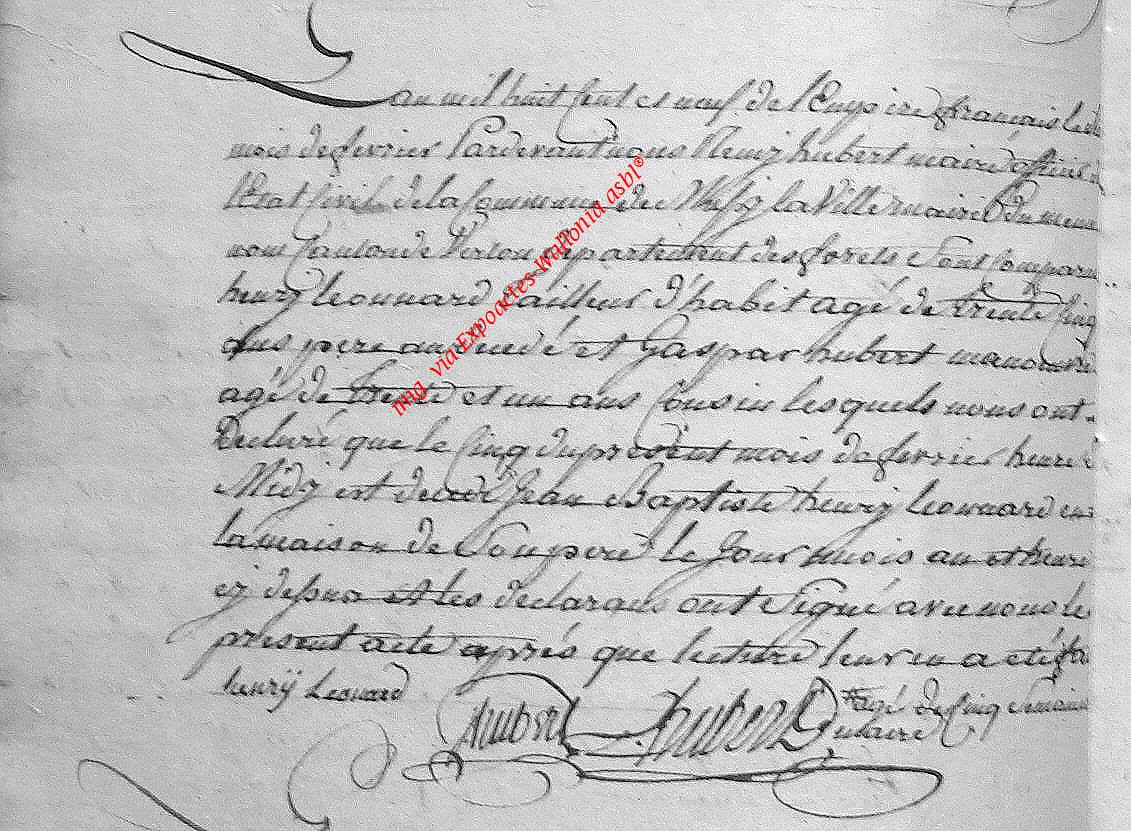 L'an mil huit Cent et neuf de l'Empire français le
mois de fevrier Pardevant nous Henry hubert maire officier
l'Etat Civil de la Commune de la Ville mairie du meme
nom Canton de departement des forets Sont Comparu
henry leonnard tailleur d'habit agé de trente Cinq
ans pere au et Gaspar hubert manouvrie
agé de trente et un ans Cousin lesquels nous ont
Declaré que le Cinq du présent mois de fevrier heure
Midy est decedé Jean Baptiste henry leonnard en
la maison de Son pere le Jour mois an et heure
cy dessus et les declarans ont Signé avec nous le
présent acte après que lecture leur en a eté fa
henrÿ Leonard
hubert
hubert
maire
+ agé de Cinq Semaine
nng via Expoactes-Wallonia asbl®